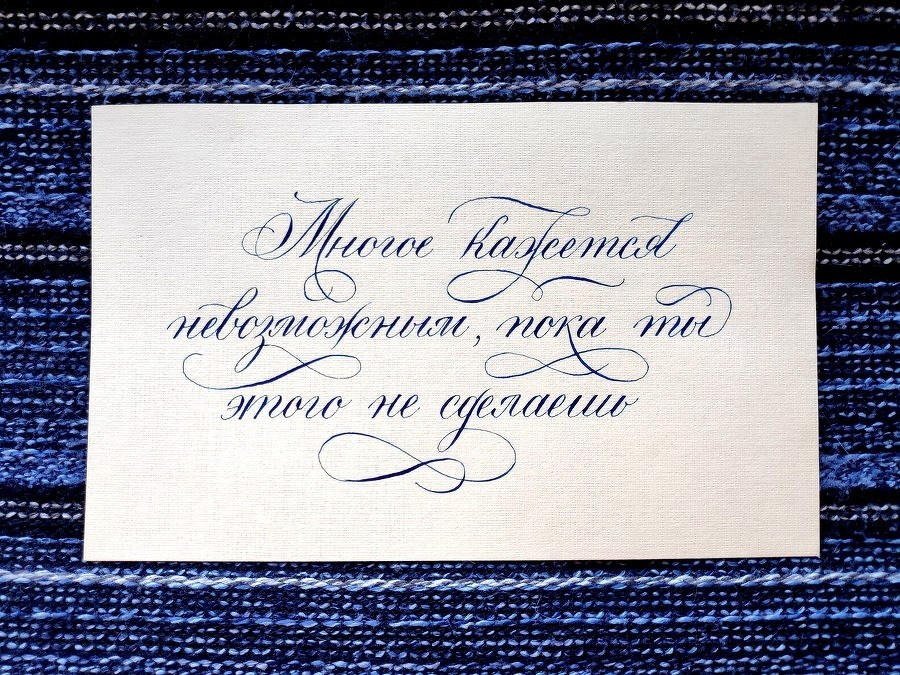 Многое кажется
невозможным, пока ты
этого не сделаешь